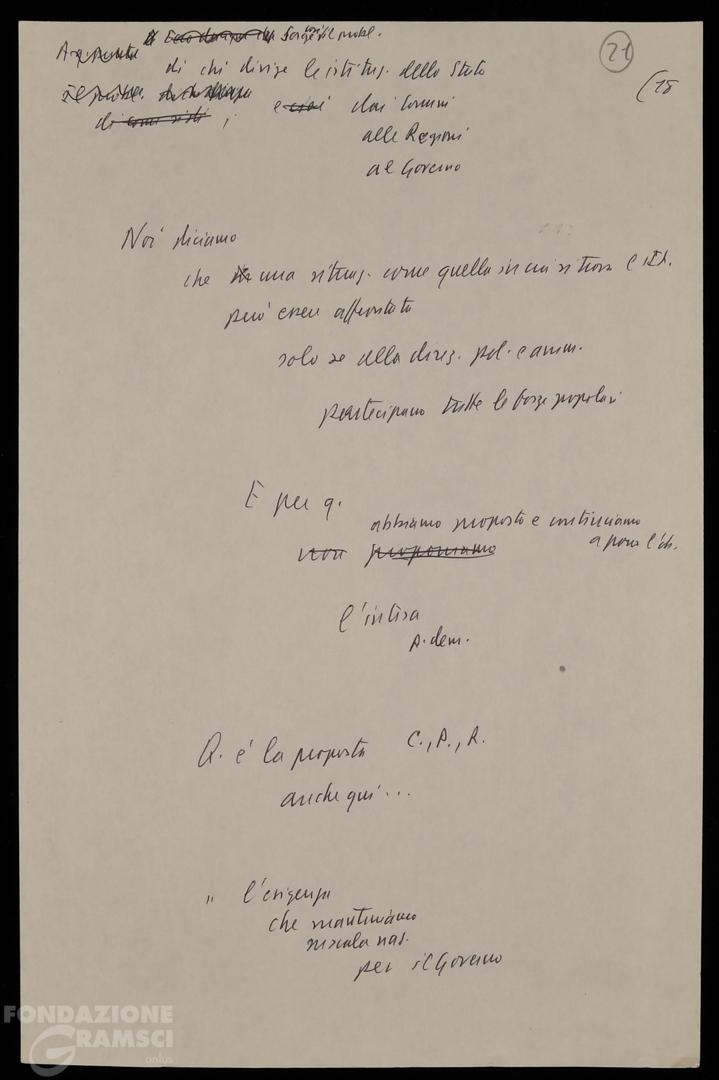 sorge il probl.
21
di chi dirige le istituz. dello Stato
(15
e dai Comuni
alle Regioni
al Governo
Noi diciamo
che una situaz. come quella in cui si trova l'It.
può essere affrontata
solo se alla direz. pol. e amm.
partecipano tutte le forze popolari
E per q.
abbiamo proposto e continuiamo
non proponiamo
a porre l'ob.
l'intesa
p. dem.
Q. è la proposta C., P., R.
anche qui...
" l'esigenza
che manteniamo
su scala naz.
per il Governo
FONDAZIONE
GRAMSCI
onlus